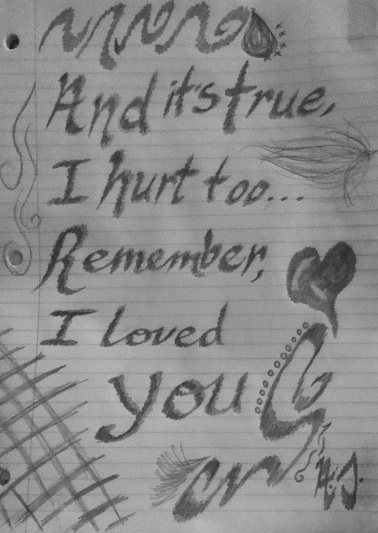 And it's true,
I hurt too...
Remember,
I loved
you